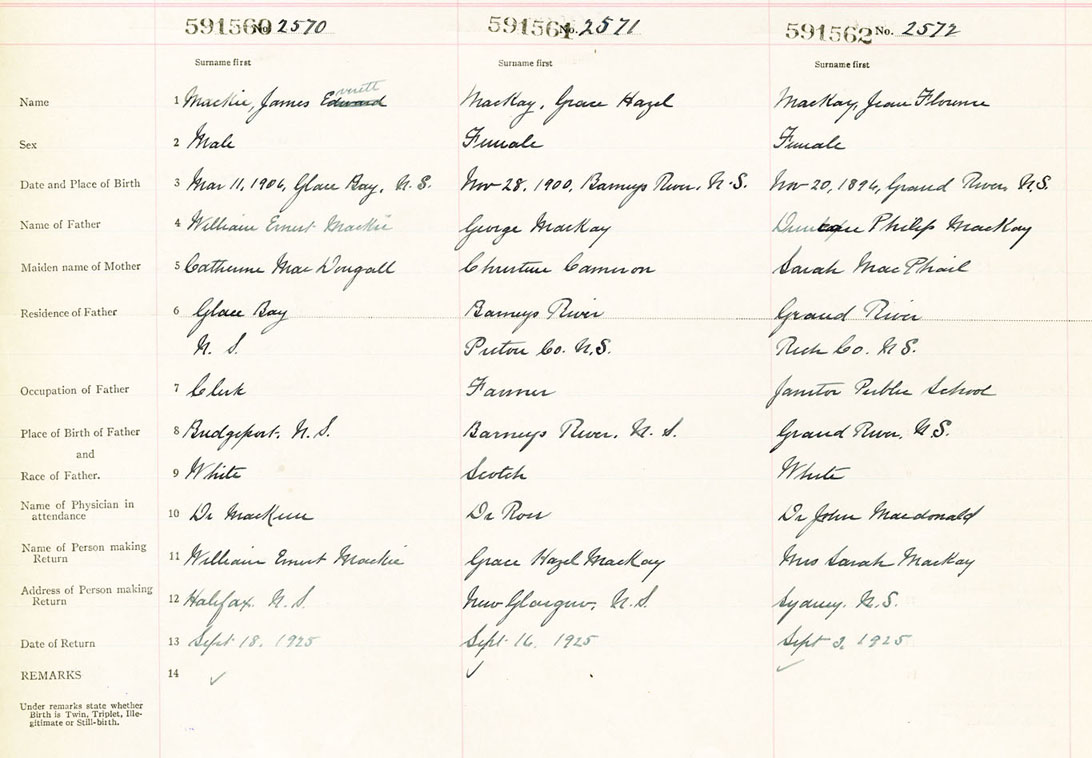 591560 No. 2570 591561 No. 2571 591562 No. 2572
Surname first Surname first Surname first
Name 1 Mackie, James Edward verett MacKay, Grace Hazel MacKay, Jean Florence
Sex 2 Male Female Female
Date and Place of Birth 3 Mar 11, 1906, Glace Bay, N.S. Nov 28, 1900, Barneys River, N.S. Nov 20, 1896, Grand River, N.S.
Name of Father 4 William Ernest Mackie George MacKay Philip MacKay
Maiden name of Mother 5 Catherine MacDougall Christine Cameron Sarah MacPhail
Residence of Father 6 Glace Bay Barneys River Grand River
N. S. Pictou Co. N.S. Rich Co. N.S.
Occupation of Father 7 Clerk Farmer Janitor Public School
Place of Birth of Father 8 Bridgeport, N.S. Barneys River, N.S. Grand River, N.S.
and
Race of Father. 9 White Scotch White
Name of Physician in
attendance 10 Dr Dr Ross Dr John Macdonald
Name of Person making
Return 11 William Ernest Mackie Grace Hazel MacKay Mrs Sarah MacKay
Address of Person making
Return 12 Halifax. N.S. New Glasgow, N.S. Sydney. N.S.
Date of Return 13 Sept 18, 1925 Sept 16, 1925 Sept 3, 1925
REMARKS 14
Under remarks state whether
Birth is Twin, Triplet, Ille-
gitimate or Still-birth.